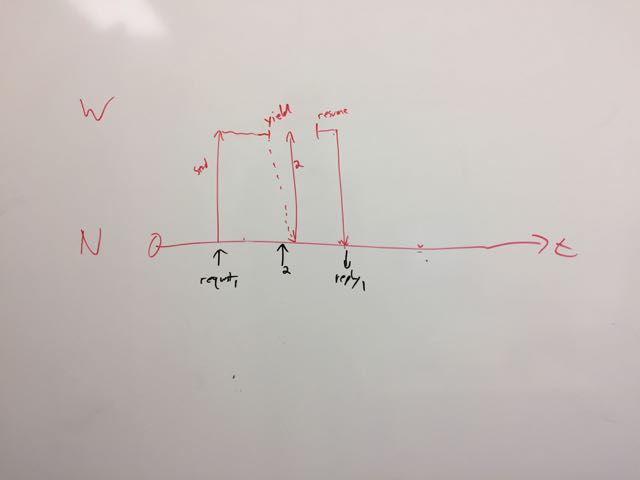 W
yield
resume
send
2
N
0
t
request1
2
reply1